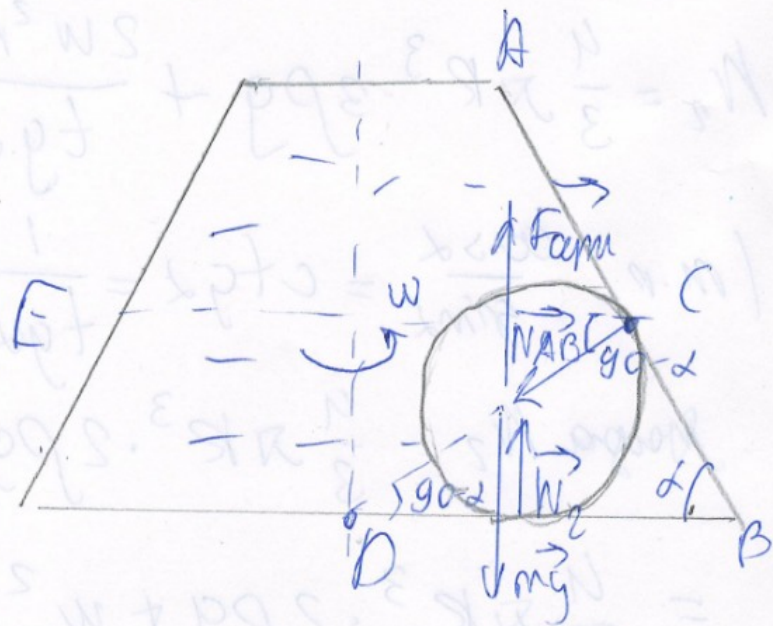 A
Fарх
E
ω
C
N_AB
90-α
90-α
N₂
α
D
mg
B